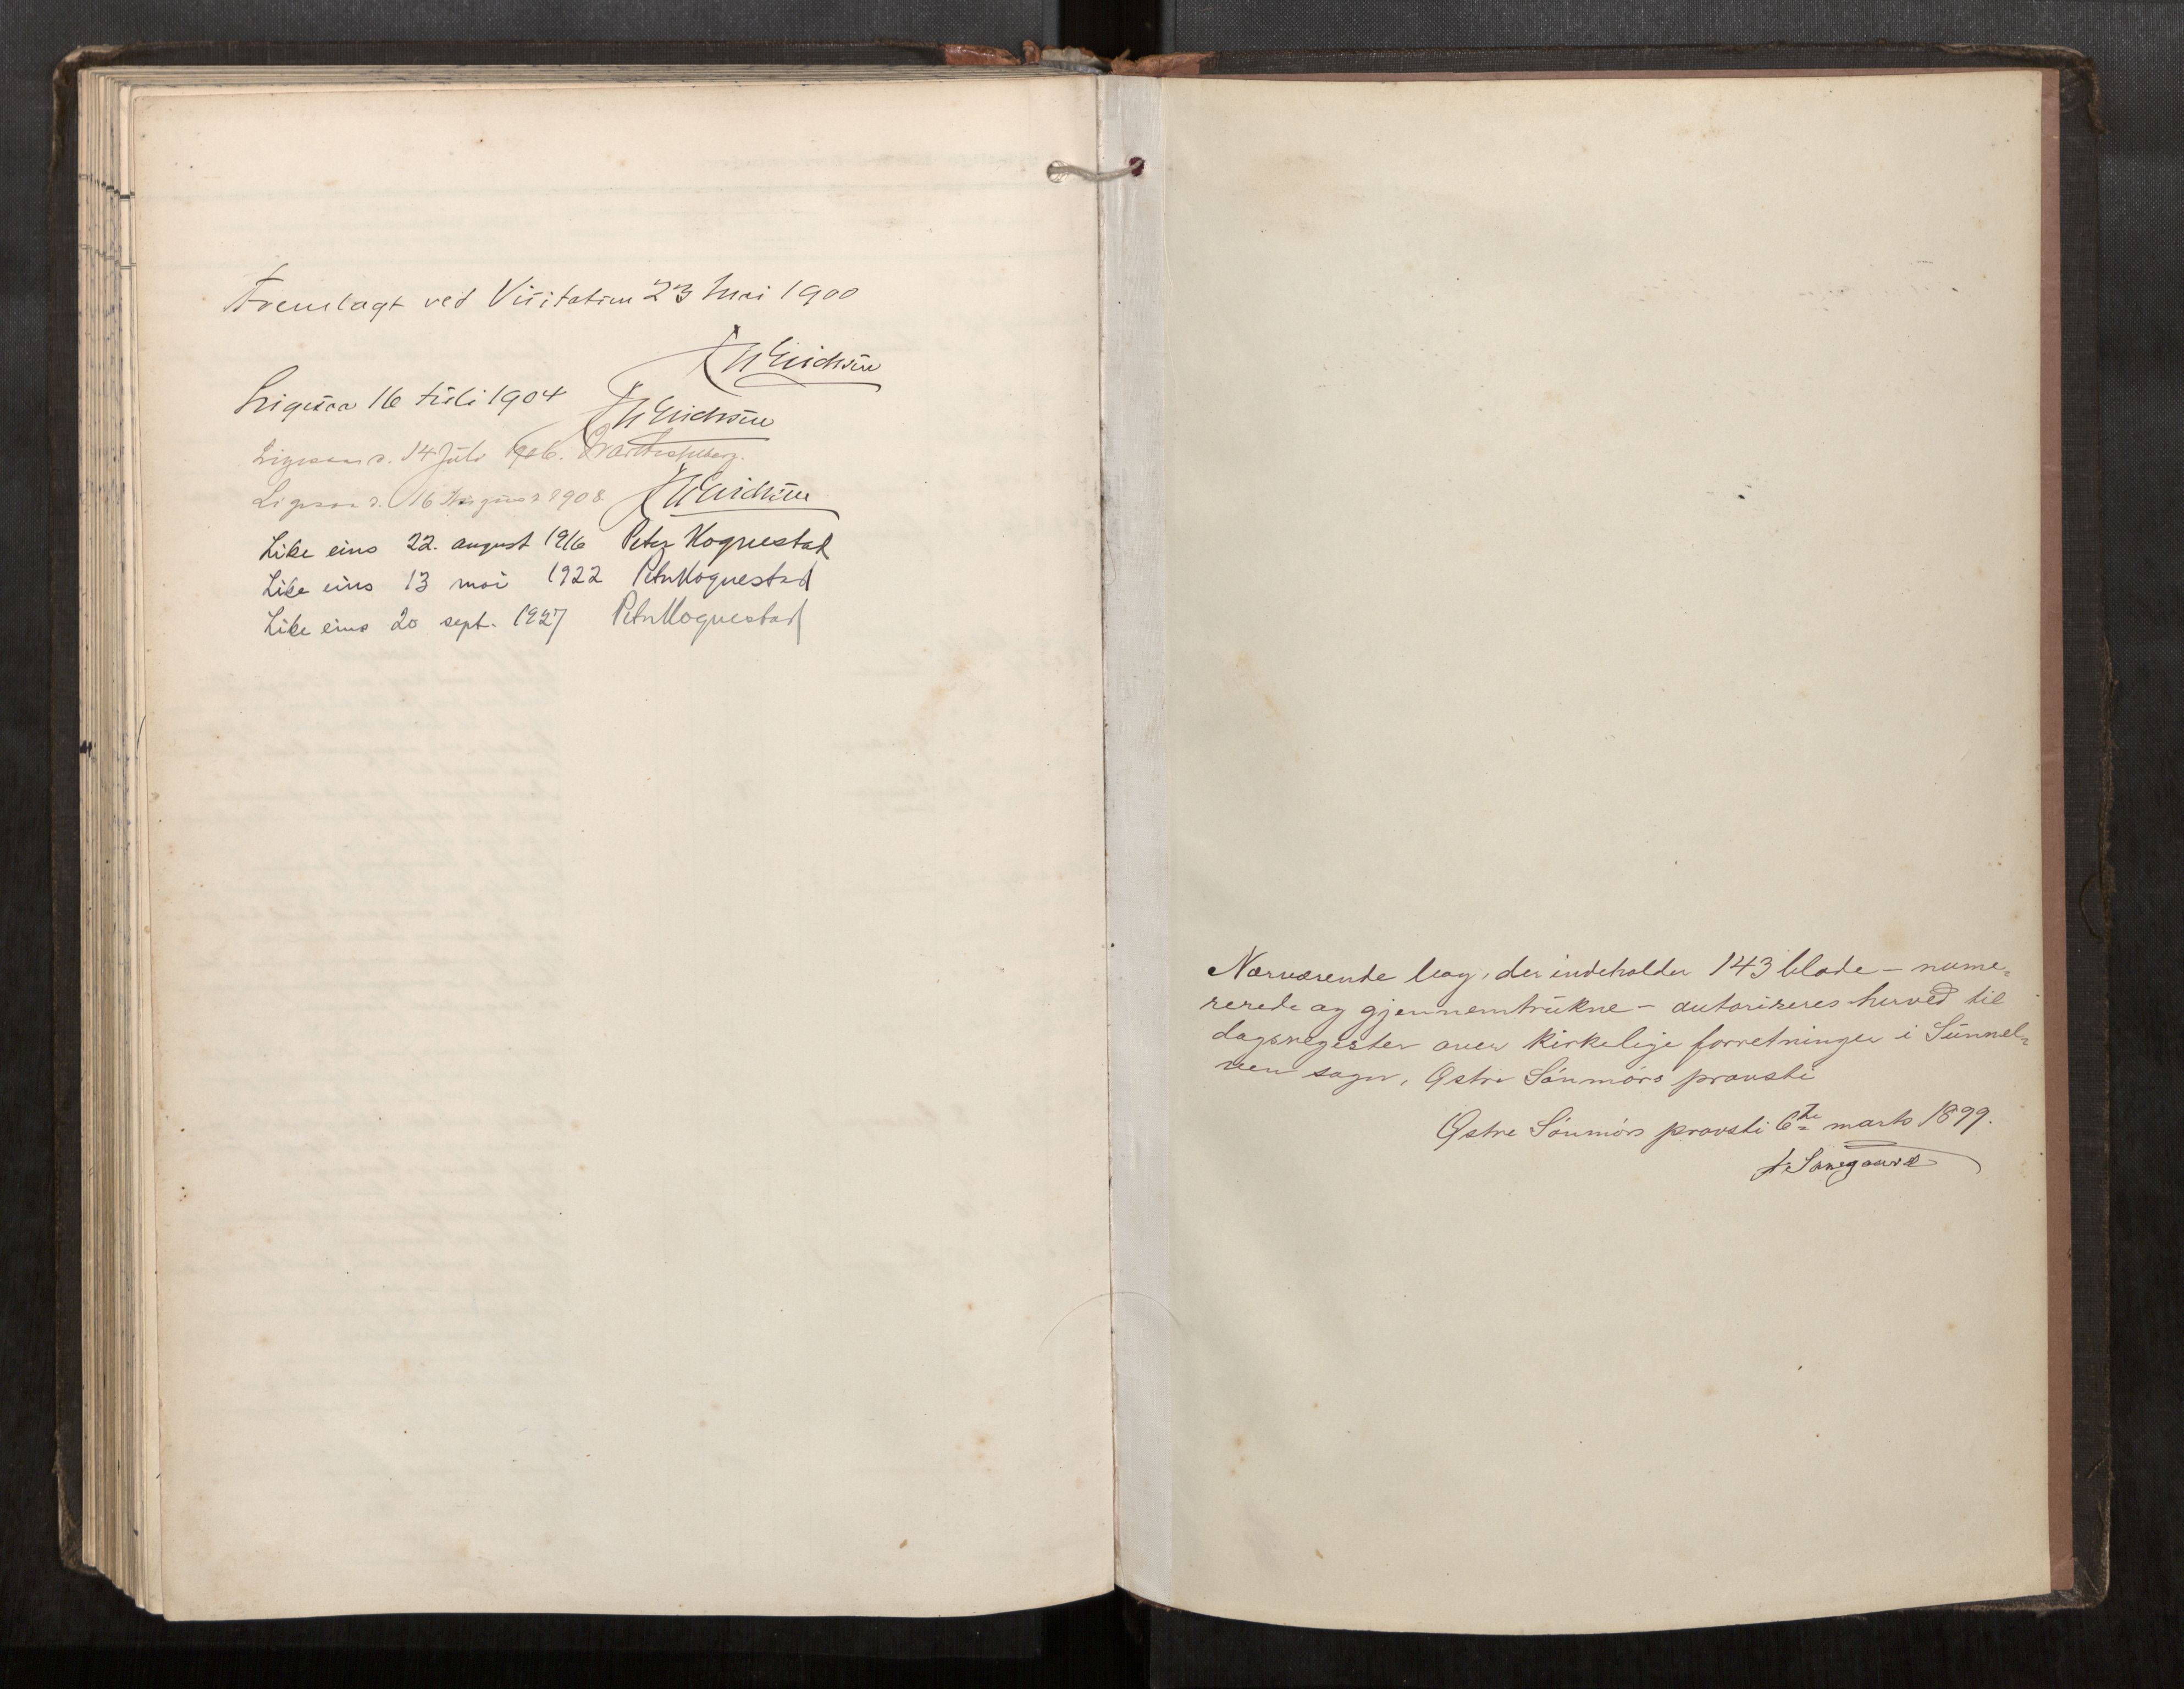 Fremlagt ved Visitation 23 Mai 1900
WErichsen
Ligesaa 16 Juli 1904 WErichsen
Ligesaa d. 14 Juli 1906.
Ligesaa d. 16 August 1908. WErichsen
Like eins 22. august 1916 Peter Hognestad
Like eins 13 mai 1922 Peter Hognestad
Like eins 20 sept. 1927 Peter Hognestad
Nærværende bog, der indeholder 143 blade – nume-
rerede og gjennemtrukne – autoriseres herved til
dagsregister over kirkelige forretninger i Sunnel-
ven sogn, Østre Søndmørs provsti
Østre Søndmørs provsti 6te marts 1899.